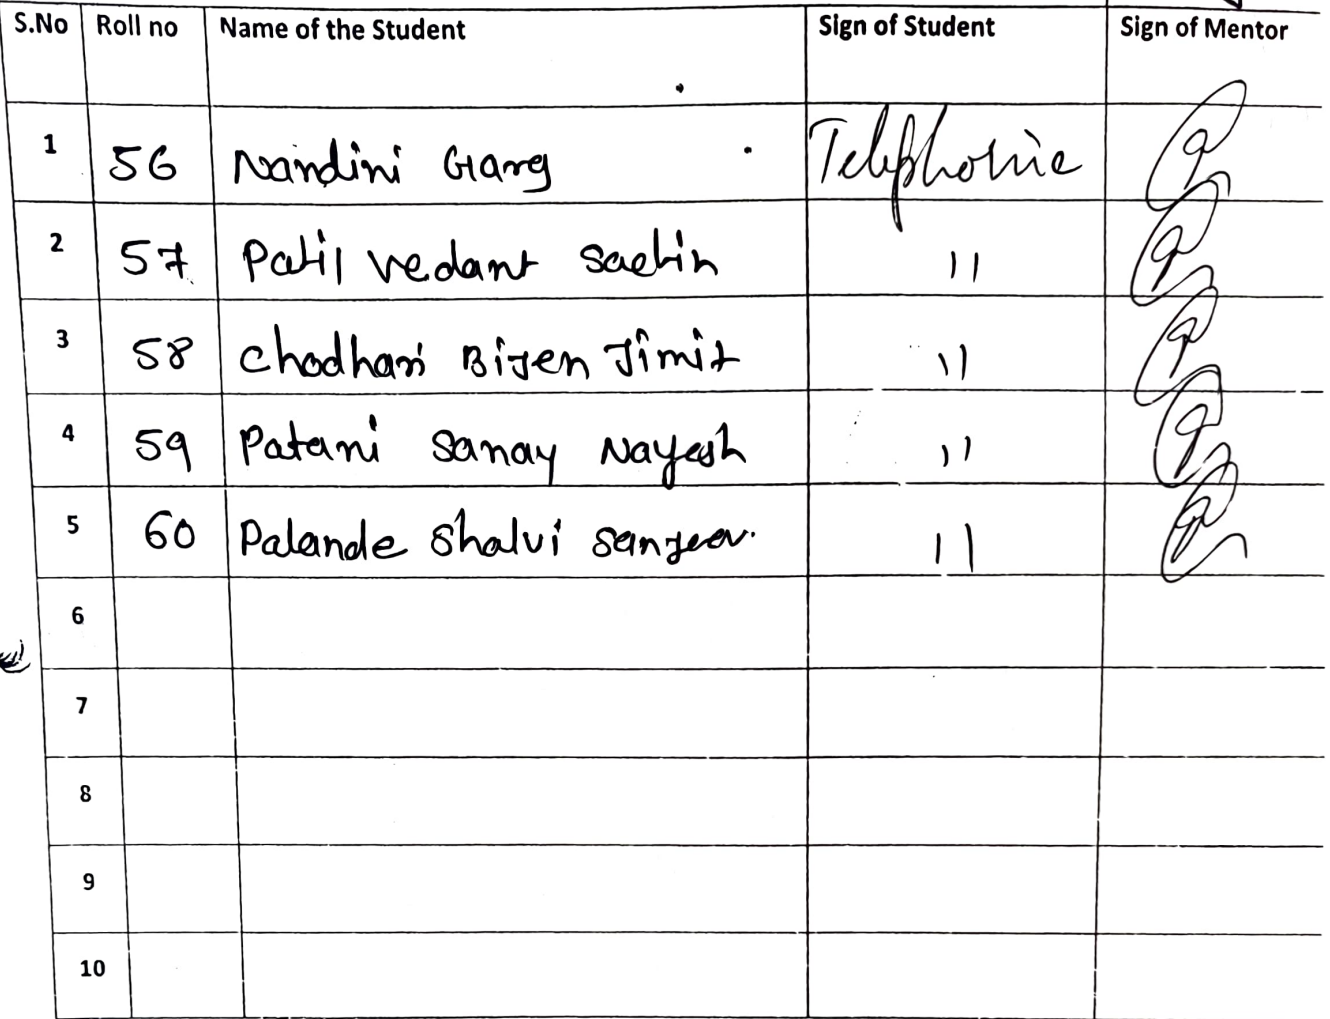 S.No Roll no Name of the Student Sign of Student Sign of Mentor
1 56 Nandini Garg Telephonic
2 57 Patil vedant Sachin 11
3 58 Chodhari Bijen Jimit 11
4 59 Patani Sanay Nayesh 11
5 60 Palande Shalvi Sanjeev.  11
6
7
8
9
10